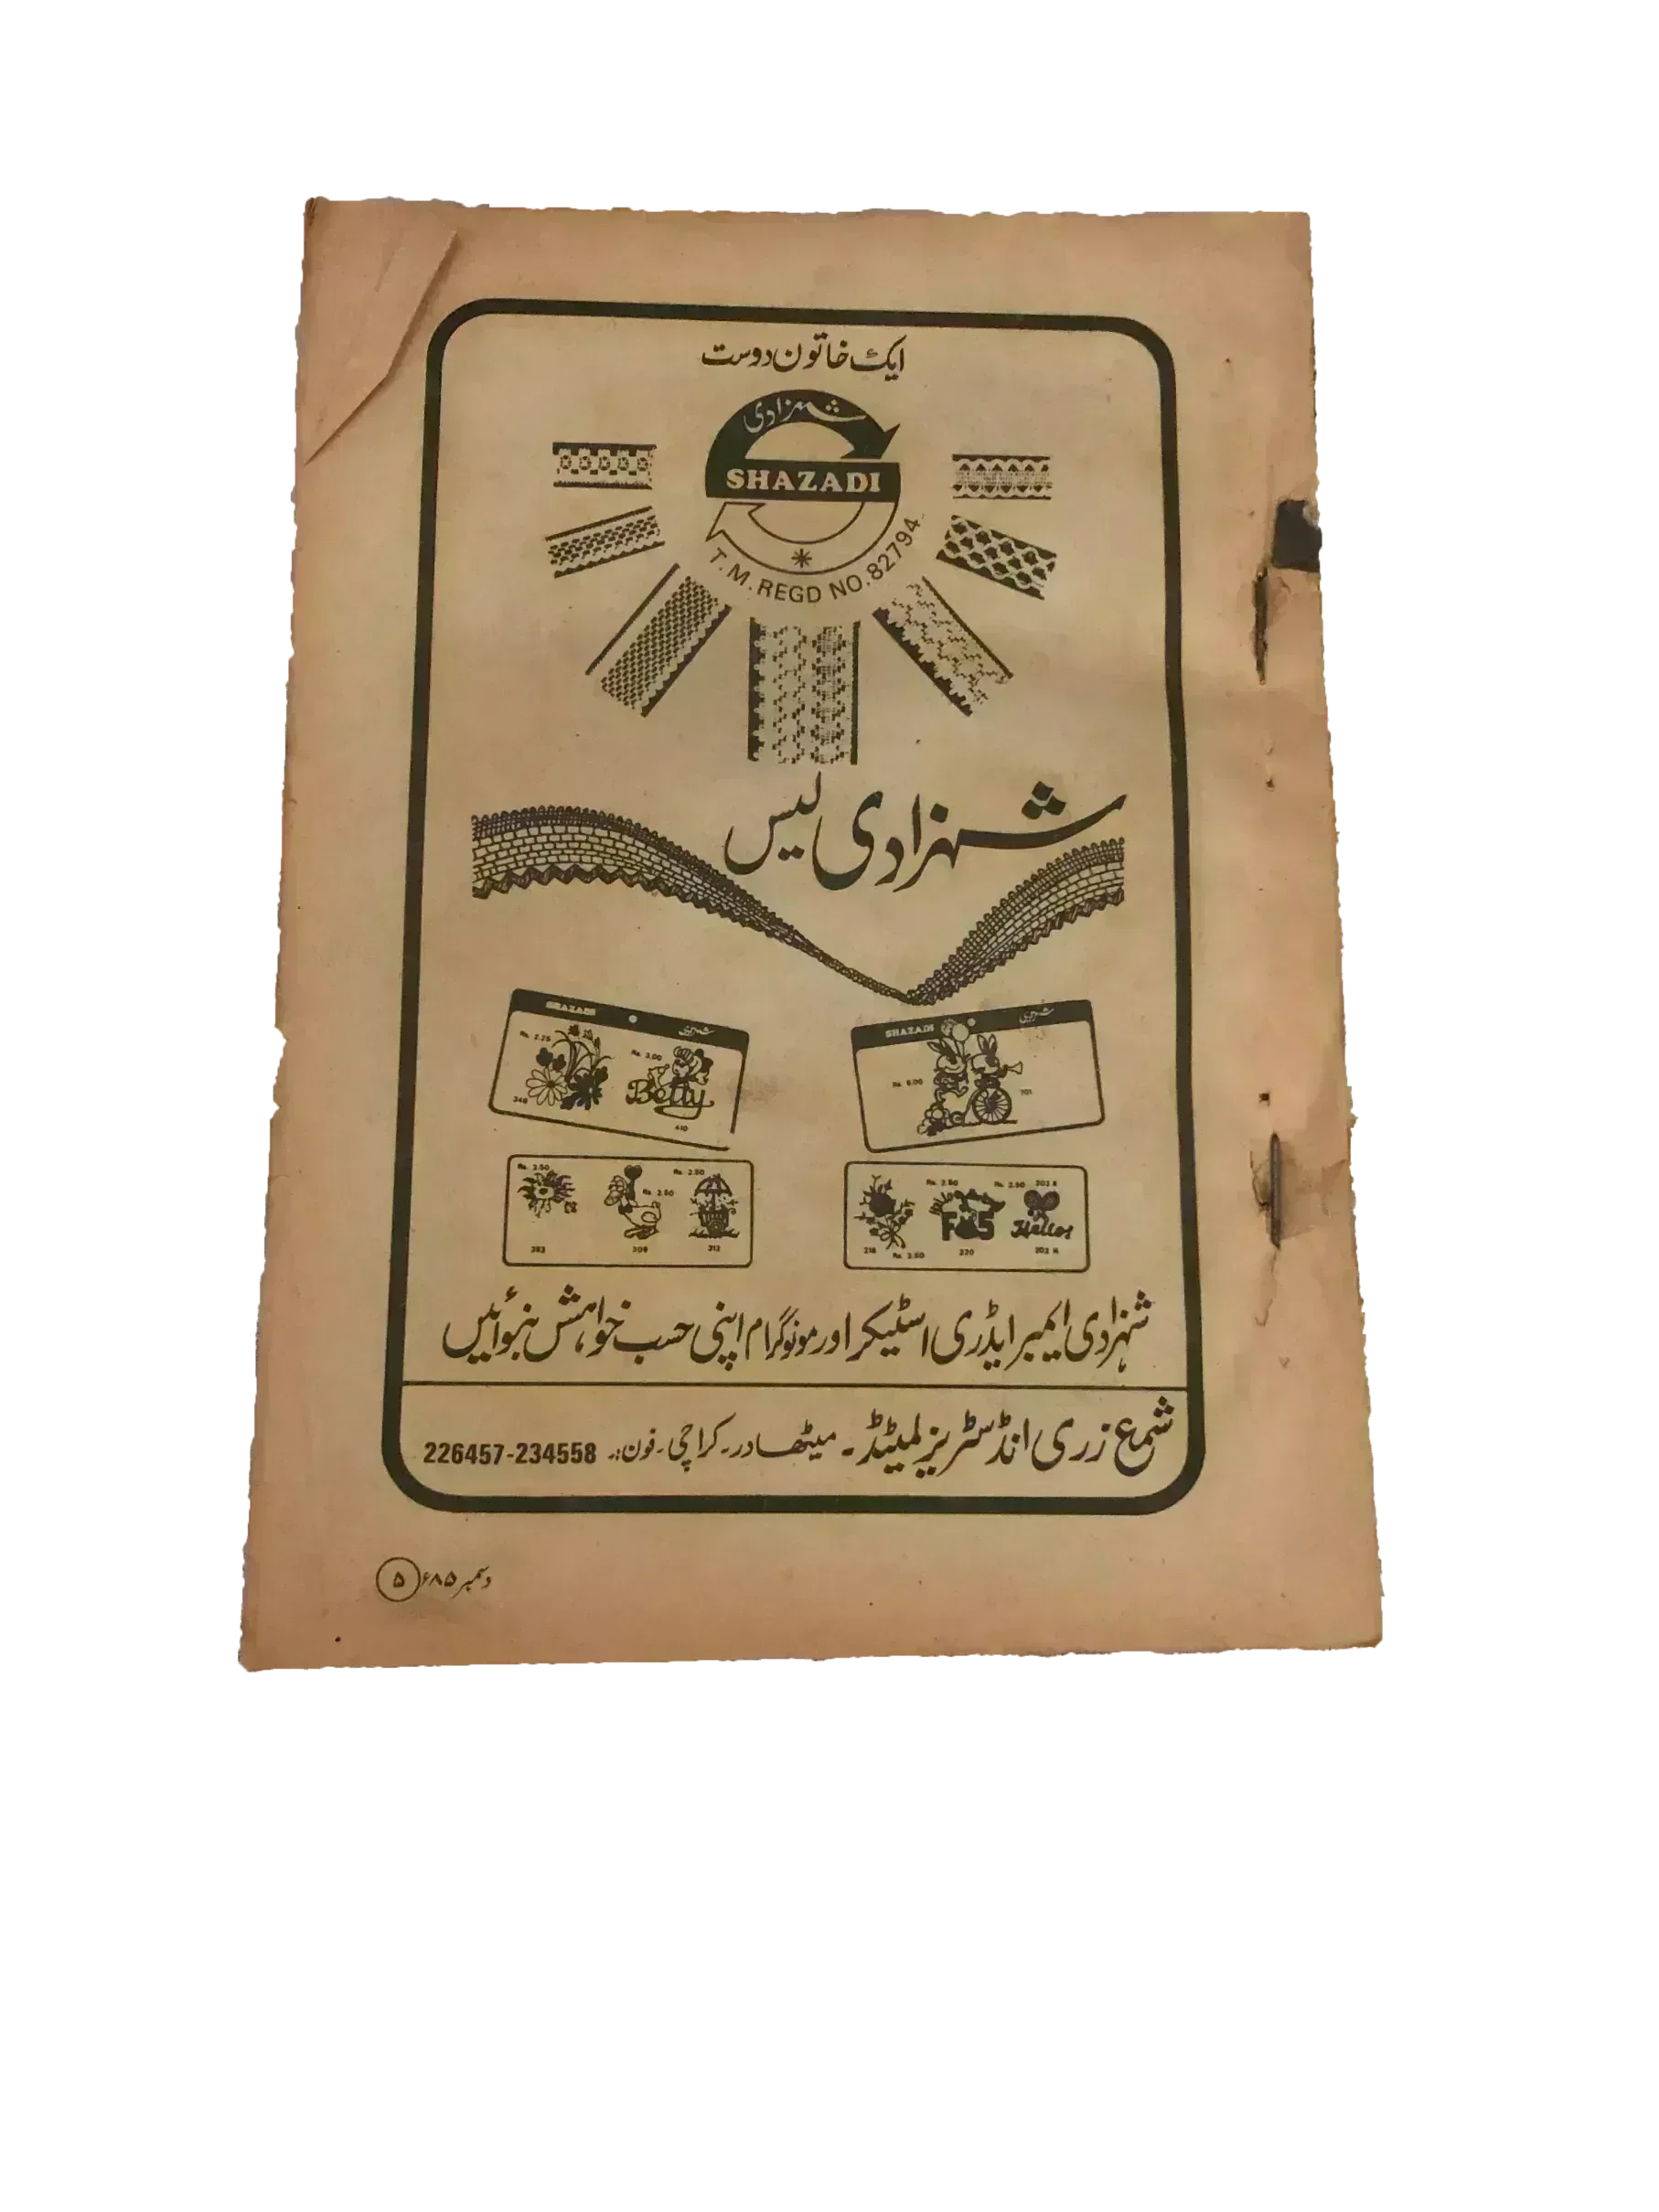 ایک خاتون دوست
شہزادی
SHAZADI
T.M. REGD NO. 82794
شہزادی لیس
SHAZADI شہزادی
Rs. 2.25
Rs. 3.00
Betty
348
410
SHAZADI شہزادی
Rs. 6.00
701
Rs. 2.50
Rs. 2.50
Rs. 2.50
309
312
Rs. 2.50
Rs. 2.50 202 H
Hello!
218 Rs. 2.50
220
202 H
شہزادی ایمبرائڈری اسٹیکر اور مونوگرام اپنی حسب خواہش بنوائیں
شمع زری انڈسٹریز لمیٹڈ۔ میٹھادر۔ کراچی۔ فون:۔ 226457-234558
دسمبر ۸۵ء ۵